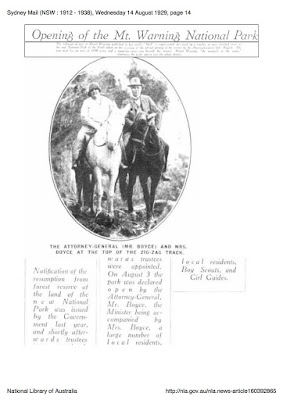 Sydney Mail (NSW : 1912 - 1938), Wednesday 14 August 1929, page 14
Opening of the Mt. Warning National Park
THE ATTORNEY-GENERAL (MR. BOYCE) AND MRS.
BOYCE AT THE TOP OF THE ZIG-ZAG TRACK.
Notification of the
resumption from
forest reserve of
the land of the
new National
Park was issued
by the Govern-
ment last year,
and shortly after-
wards trustees
wards trustees
were appointed.
On August 3 the
park was declared
open by the
Attorney-General,
Mr. Boyce, the
Minister being ac-
companied by
Mrs. Boyce, a
large number of
local residents,
local residents,
Boy Scouts, and
Girl Guides.
National Library of Australia
http://nla.gov.au/nla.news-article160392865